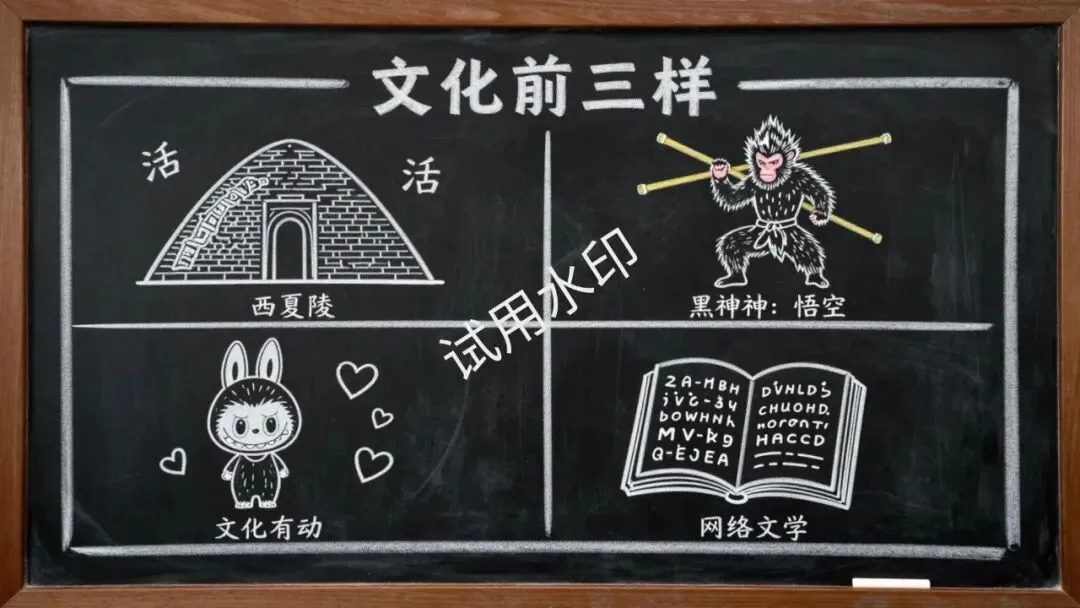 文化前三样
活
活
西夏陵
黑神神：悟空
试用水印
文化有动
2A-MBH
DVHLDS
CHUOHD.
bOWHNh
MV-kg
HACCD
Q-EJEA
网络文学